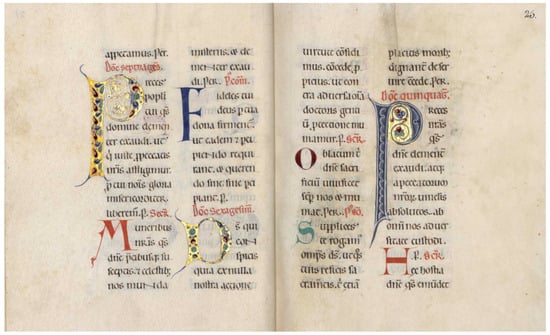 appetamus. Per.
Dñc septuages.
Preces
popli
tui q̄s
domine clemen
ter exaudi. ut
q̄ iuste p peccatis
nr̄is affligimur.
p tui nois gloria
misericorditer
liberem. P. Secr.
Muneribus
nr̄is q̄s
dn̄e pcibusq; su
sceptis. & celestib;
nos munda
misteriis. & cle
menter exau
di. Per. P. com.
Fideles tui
deus p tua
dona firment̄
ut eadem & per
cipiendo requi
rant. & queren
do sine fine pci
piant. P.
Dñc sexagesim.
Ds qui
con
spicis
quia ex nulla
nostra actione
26.
uirtute cōfidi
mus. cōcede p
pitius. ut con
tra aduersa om̄a
doctoris gentiū
protectione mu
niamur. P. Secr.
Oblatum t
dn̄e sacri
ficiū uiuificet
sep nos & mu
niat. Per. p co.
Supplices
te rogam̄
omps ds. ut q̄s
tuis reficis sa
cramtis. & etiā
placitis morib;
dignant̄ deser
uire cc̄ede. P.
Dñc quinquag.
Preces
nr̄as
q̄s
dn̄e clement̄
exaudi. atq;
a peccatorum
uinculis
absolutos. ab
om̄i nos aduer
sitate custodi.
P. Secr.
Hec hostia
dn̄e q̄s emundet